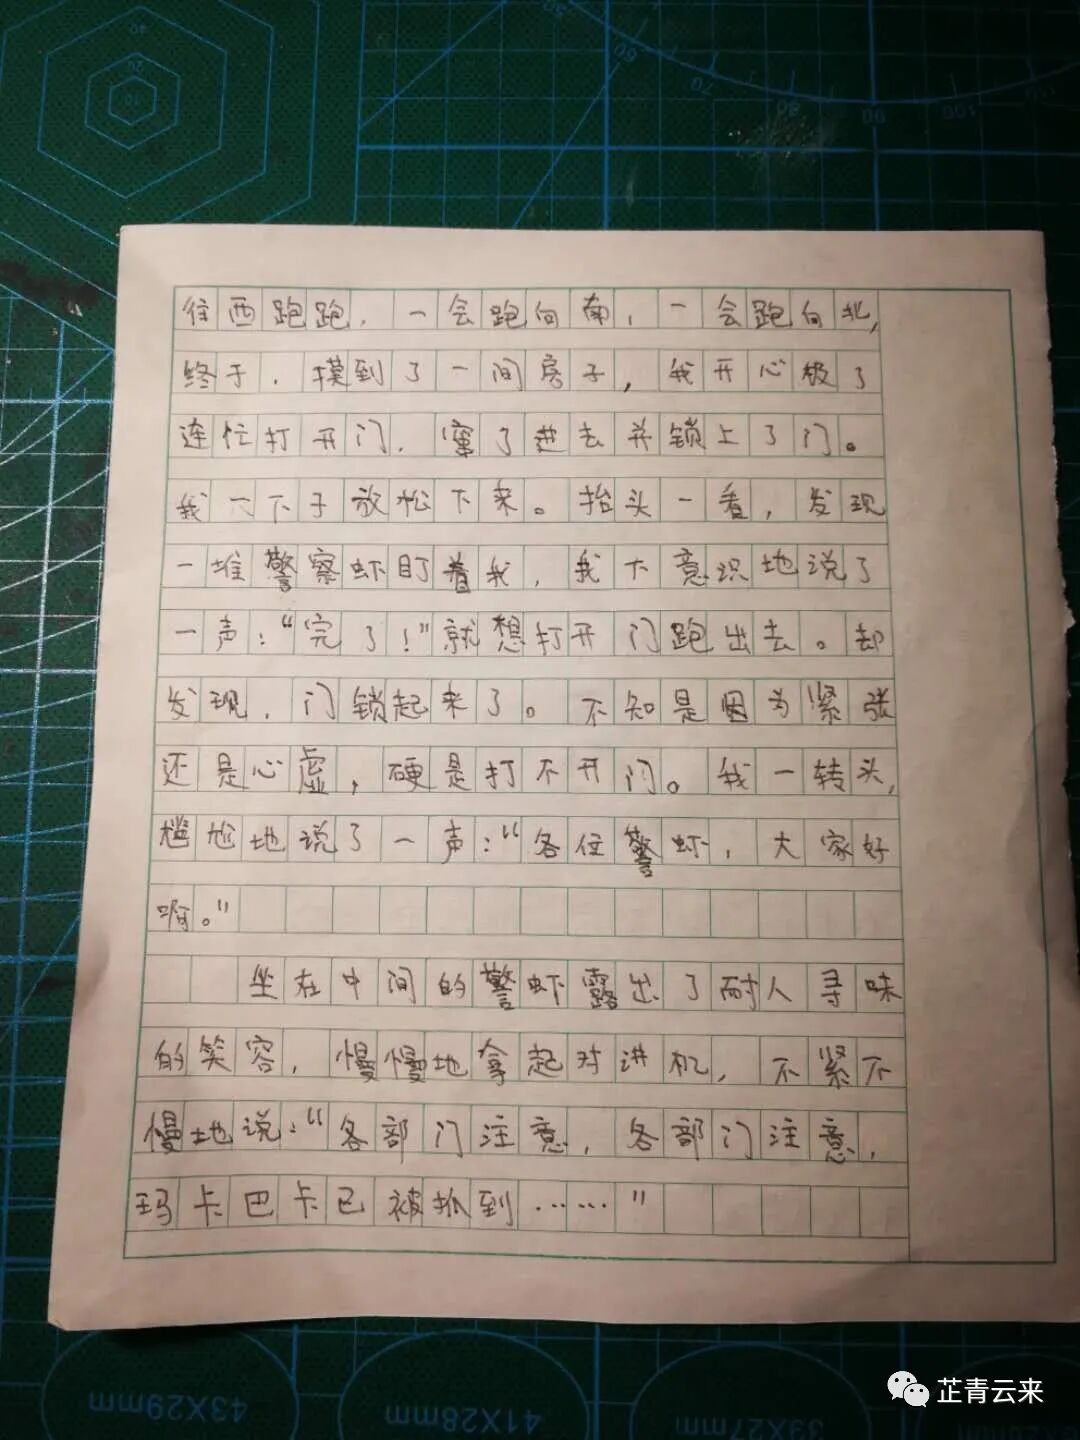 往西跑跑，一会跑向南，一会跑向北，
终于，摸到了一间房子，我开心极了
连忙打开门，窜了进去并锁上了门。
我一下子放松下来。抬头一看，发现
一堆警察虾盯着我，我下意识地说了
一声：“完了！”就想打开门跑出去。却
发现，门锁起来了。不知是因为紧张
还是心虚，硬是打不开门。我一转头，
尴尬地说了一声：“各位警虾，大家好
啊。”
坐在中间的警虾露出了耐人寻味
的笑容，慢慢地拿起对讲机，不紧不
慢地说：“各部门注意，各部门注意，
玛卡巴卡已被抓到……”
10
20
60
70
80
90
100
43X29mm
41X28mm
39X27mm
芷青云来